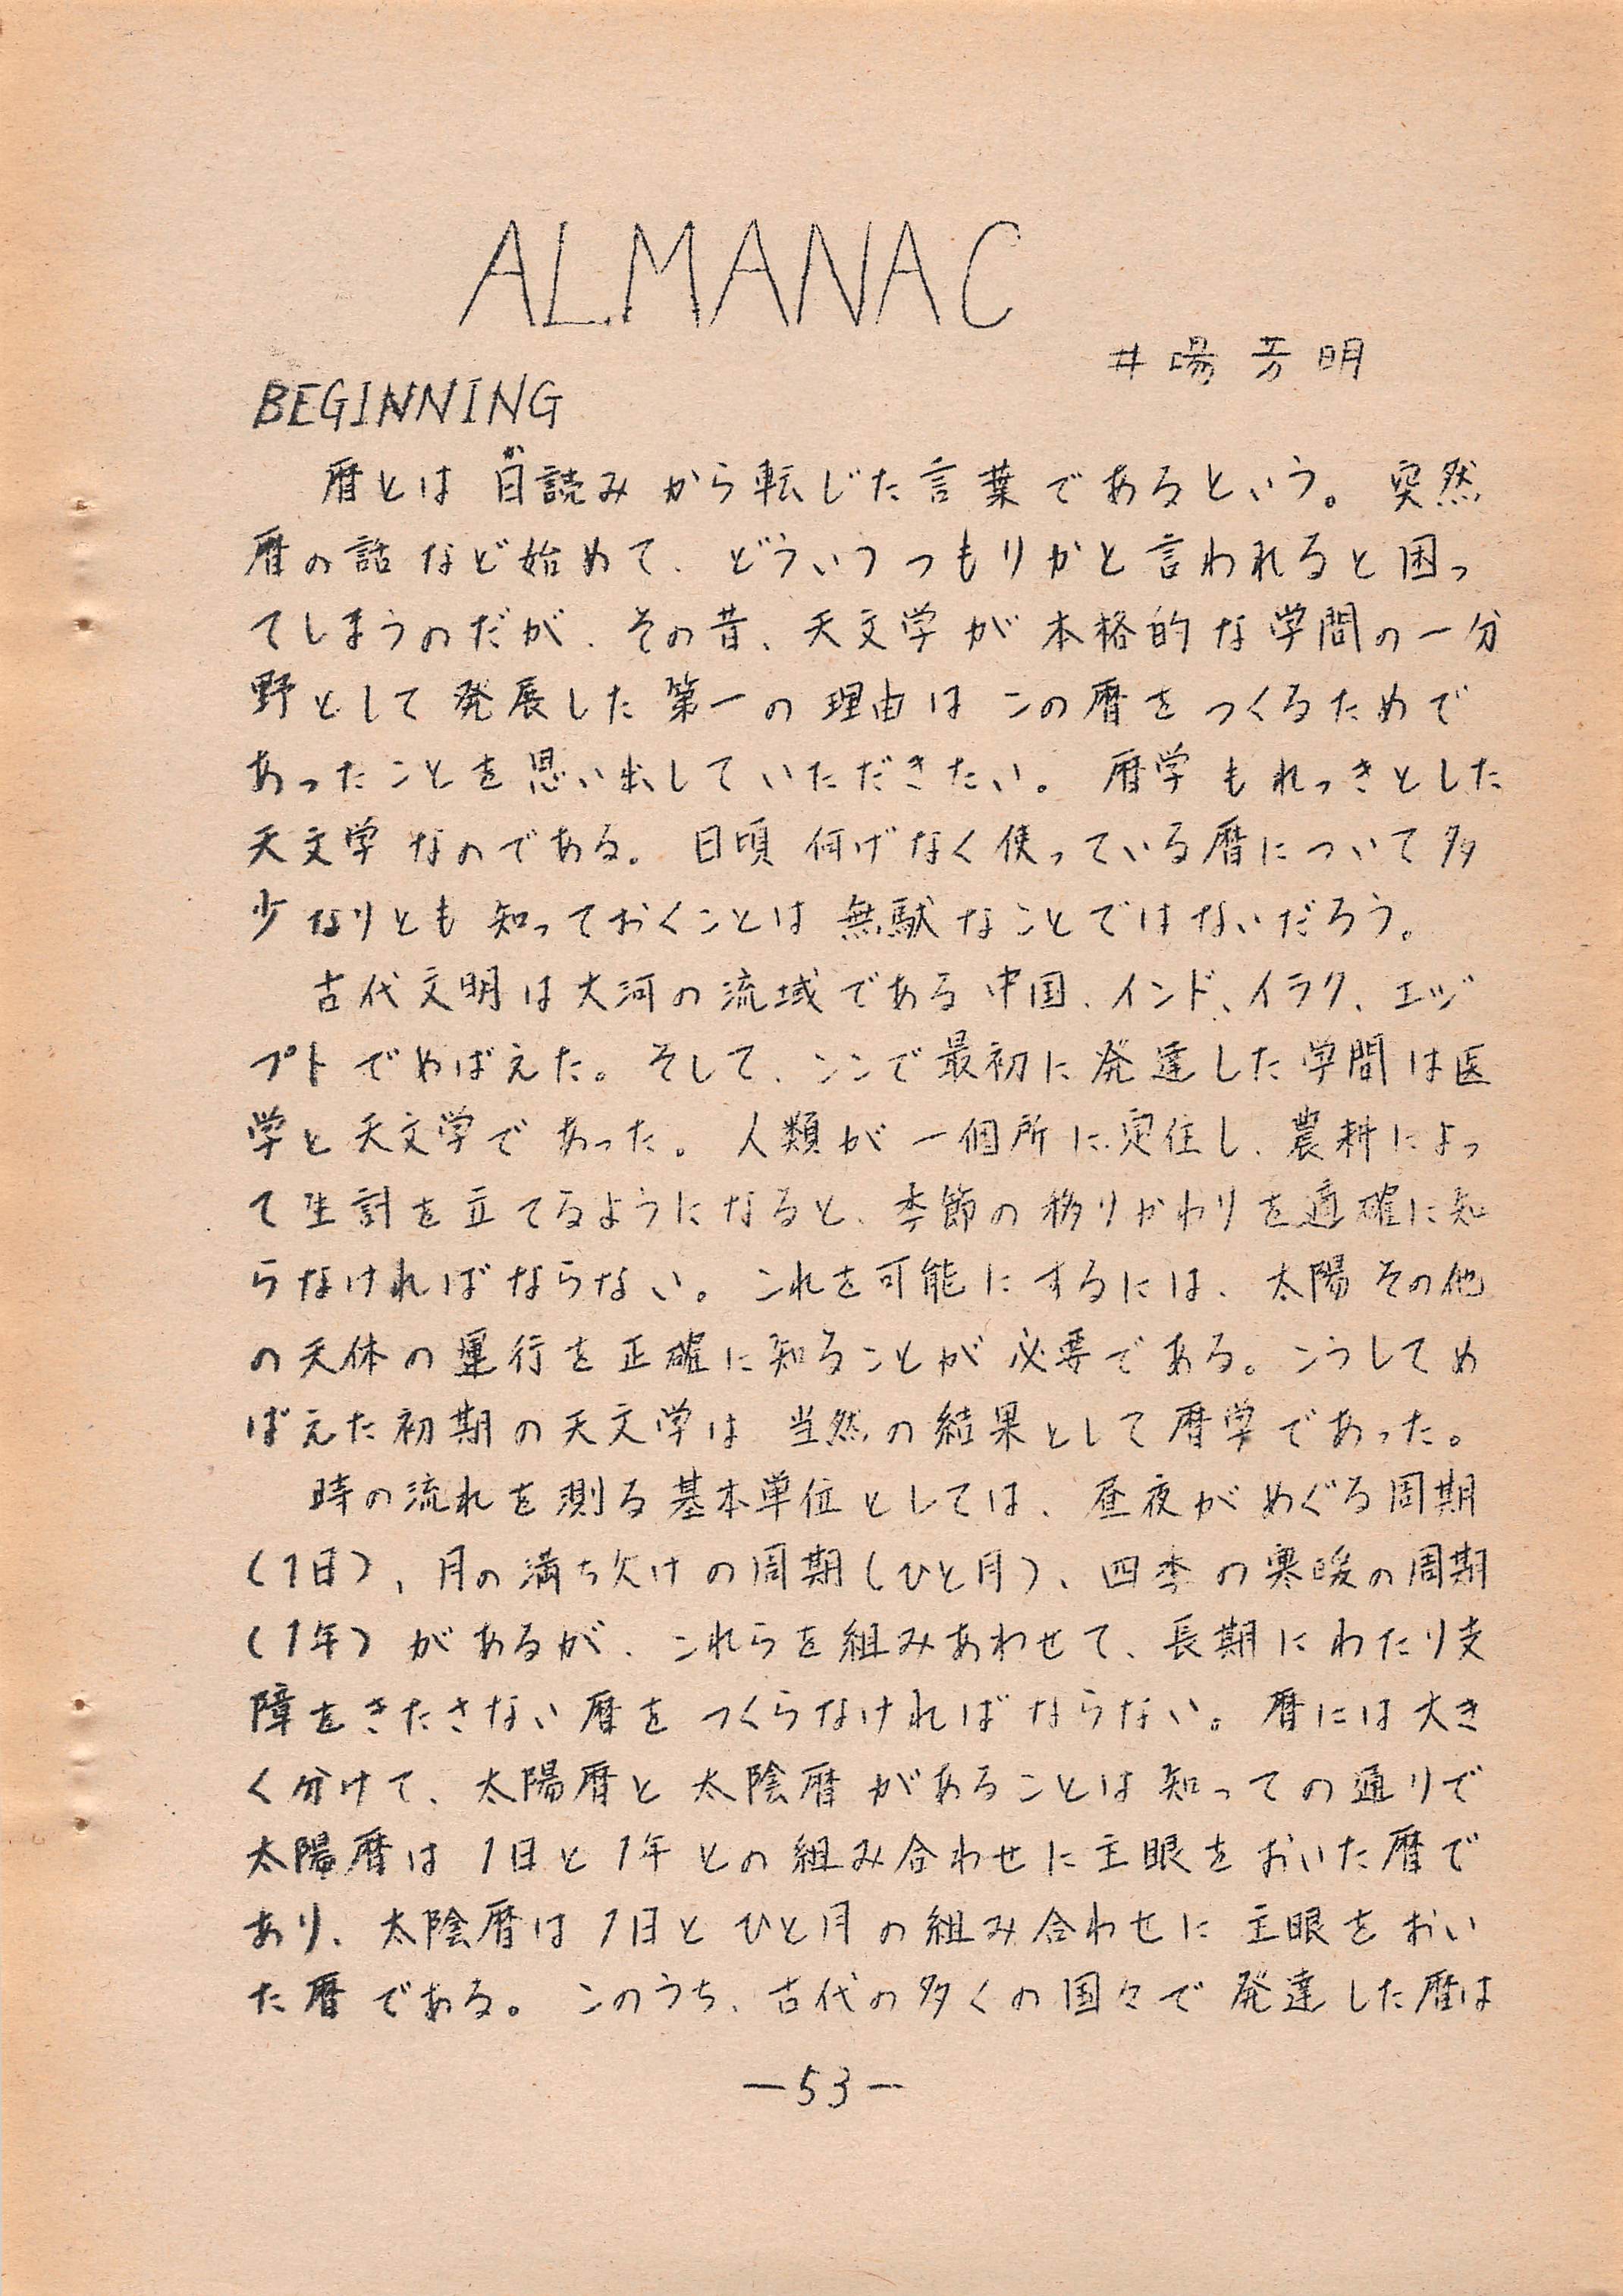 ALMANAC
井陽芳明
BEGINNING
暦とは日読みから転じた言葉であるという。突然
暦の話など始めて、どういうつもりかと言われると困っ
てしまうのだが、その昔、天文学が本格的な学問の一分
野として発展した第一の理由はこの暦をつくるためで
あったことを思い出していただきたい。暦学もれっきとした
天文学なのである。日頃何げなく使っている暦について多
少なりとも知っておくことは無駄なことではないだろう。
古代文明は大河の流域である中国、インド、イラク、エジ
プトでめばえた。そして、ここで最初に発達した学問は医
学と天文学であった。人類が一個所に定住し、農耕によっ
て生計を立てるようになると、季節の移りかわりを適確に知
らなければならない。これを可能にするには、太陽その他
の天体の運行を正確に知ることが必要である。こうしてめ
ばえた初期の天文学は当然の結果として暦学であった。
時の流れを測る基本単位としては、昼夜がめぐる周期
(1日)、月の満ち欠けの周期(ひと月)、四季の寒暖の周期
(1年)があるが、これらを組みあわせて、長期にわたり支
障をきたさない暦をつくらなければならない。暦には大き
く分けて、太陽暦と太陰暦があることは知っての通りで
太陽暦は1日と1年との組み合わせに主眼をおいた暦で
あり、太陰暦は1日とひと月の組み合わせに主眼をおい
た暦である。このうち、古代の多くの国々で発達した暦は
—53—